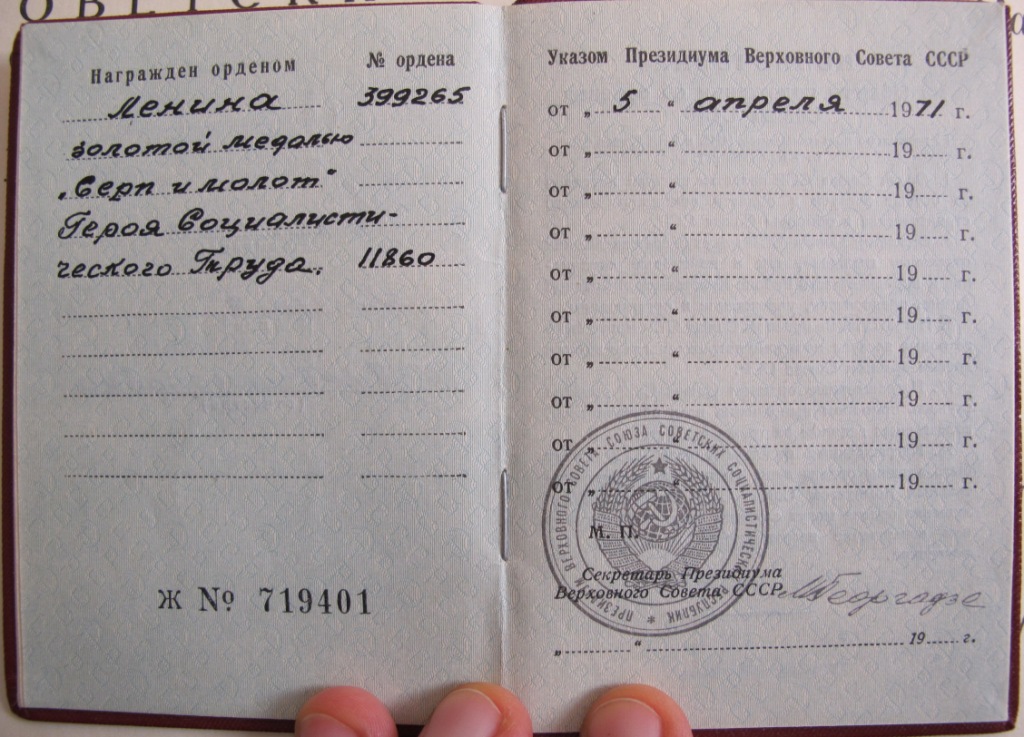 Награжден орденом № ордена
Ленина 399265
золотой медалью
„Серп и молот“
Героя Социалисти-
ческого Труда. 11860
Ж № 719401
Указом Президиума Верховного Совета СССР
от „ 5 “ апреля 1971 г.
от „ “ 19 г.
от „ “ 19 г.
от „ “ 19 г.
от „ “ 19 г.
от „ “ 19 г.
от „ “ 19 г.
от „ “ 19 г.
от „ “ 19 г.
от „ “ 19 г.
ПРЕЗИДИУМ ВЕРХОВНОГО СОВЕТА СОЮЗА СОВЕТСКИХ СОЦИАЛИСТИЧЕСКИХ РЕСПУБЛИК
М. П.
Секретарь Президиума
Верховного Совета СССР МГеоргадзе
„ “ 19 г.